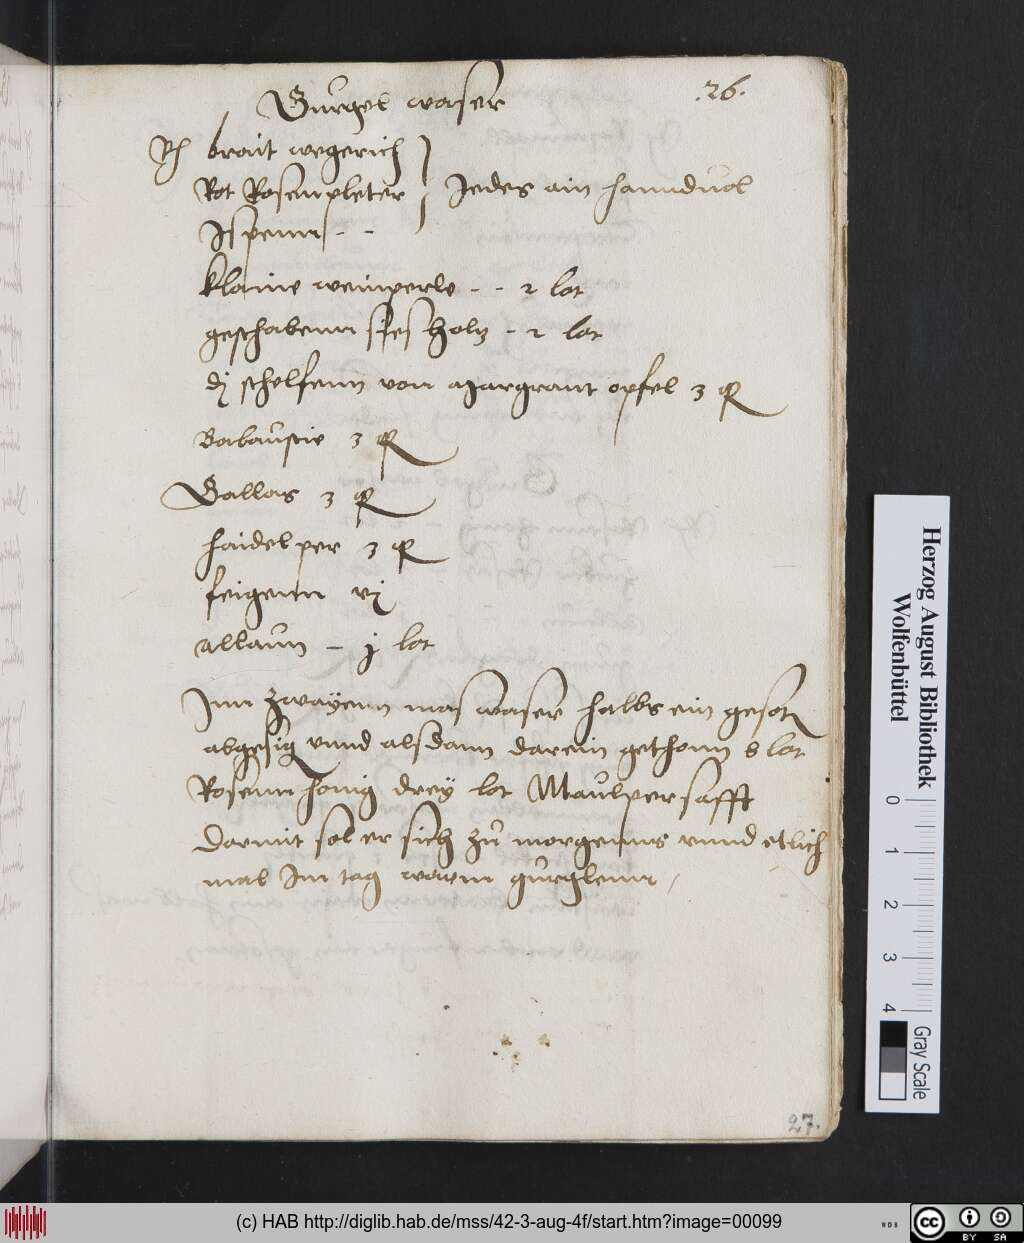 Gurgel waser
.26.
Rp brait wegerich
Rot Rosenpleter Jedes ain hanndvol
Jspenn - -
klaine weinperle - - 2 lot
geschabenn sies holz - 2 lot
dj schelfenn von margrant opfel 3 q
Balaustie 3 q
Gallas 3 q
haidelper 3 q
feigenn vj
allaun - j lot
Jnn zwayenn mas waser halbs ein gesotz
abgesig vnnd alsdann darein gethonn 6 lot
Rosenn honig drey lot Maulpersafft
darmit sol er sich zu morgenns vnnd etlich
mal Jm tag warm gurglenn /
27.
Herzog August Bibliothek
Wolfenbüttel
0 1 2 3 4
Gray Scale
(c) HAB http://diglib.hab.de/mss/42-3-aug-4f/start.htm?image=00099
WDB
cc BY SA